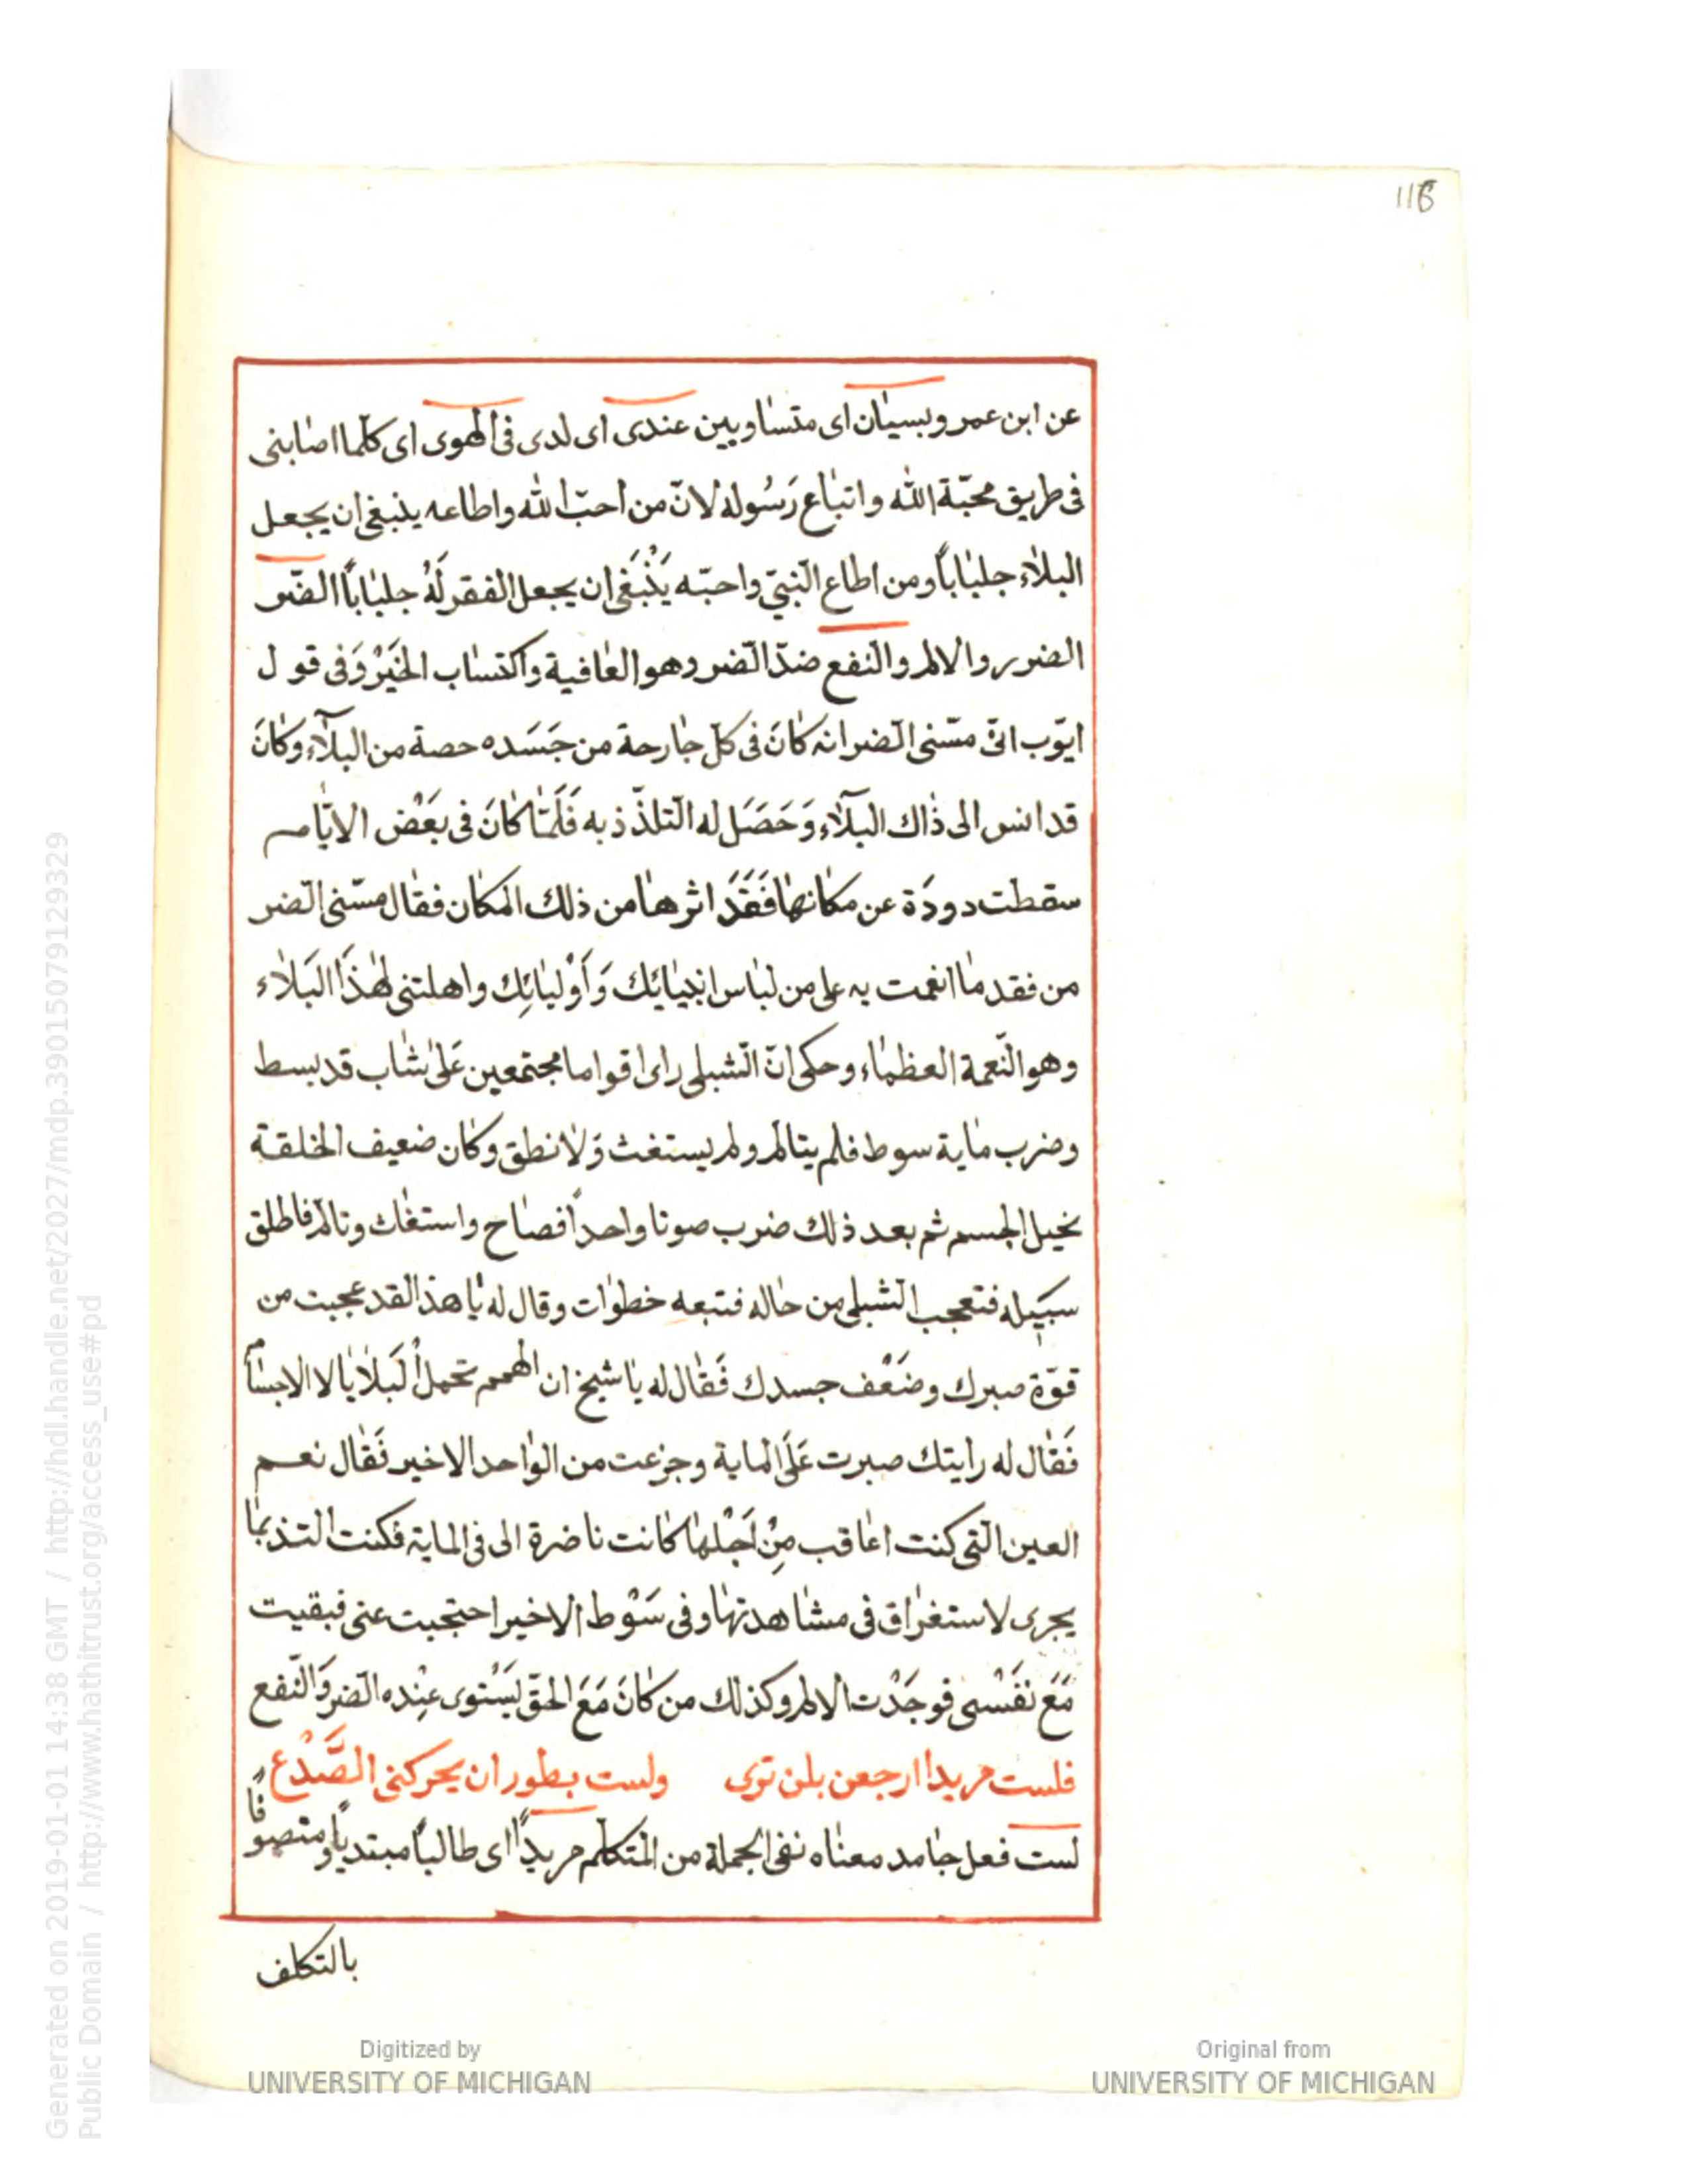 116
عن ابن عمر وبسيان اى متساويين عندى اى لدى فى الهوى اى كلما اصابنى
فى طريق محبّة الله واتباع رَسُوله لانّ من احبّ الله واطاعه ينبغى ان يجعل
البلاء جلباباً ومن اطاع النّبىّ واحبّه يَنْبَغى ان يجعل الفقر لَهُ جلباباً الضّر
الضرر والالم والنّفع ضدّ الضّر وهو العافية واكتساب الخَيْرْ وَفى قول
ايّوب انّى مسّنى الضّر انه كانَ فى كلّ جارحة من جَسَده حصة من البلآء وكانَ
قد انس الى ذاك البلآء وَحَصَل له التلذّذ به فَلَمّا كانَ فى بَعْض الايّام
سقطت دودَة عن مكانها فَفَقَدَ اثرها من ذلك المكان فقال مسّنى الضّر
من فقد ما انعمت به على من لباس انبيائك وَاَوْليائِك واهلتنى لهذا البَلاء
وهو النّعمة العظماء وحكى انّ الشّبلى راى اقواما مجتمعين عَلى شاب قد بسط
وضرب ماية سوط فلم يتالم ولم يستغث وَلا نطق وكان ضعيف الخلقة
نحيل الجسم ثم بعد ذلك ضرب صوتا واحداً فصاح واستغاث وتالّم فاطلق
سبيله فتعجب الشّبلى من حاله فتبعه خطوات وقال له يا هذا لقد عجبت من
قوّة صبرك وضَعْف جسدك فَقال له يا شيخ ان الهمم تحمل البَلايا لا الاجسام
فَقال له رايتك صبرت عَلَى الماية وجزعت من الواحد الاخير فَقال نعم
العين الّتى كنت اعاقب مِنْ اَجْلها كانت ناضرة الى فى الماية فكنت التذ بما
يجرى لاستغراق فى مشاهدتها وفى سَوْط الاخير احتجبت عنى فبقيت
مَعَ نفَسْى فوجَدْت الالم وكذلك من كانَ مَعَ الحقّ يَسْتوى عِنْده الضّر وَالنّفع
فلست مريدا ارجعن بلن ترى ولست بطور ان يحركنى الصَّدْع
لست فعل جامد معناه نفى الجملة من المتكلّم مريداً اى طالباً مبتدياً ومتصوفاً
بالتكلف
Generated on 2019-01-01 14:38 GMT / http://hdl.handle.net/2027/mdp.39015079129329
Public Domain / http://www.hathitrust.org/access_use#pd
Digitized by
UNIVERSITY OF MICHIGAN
Original from
UNIVERSITY OF MICHIGAN